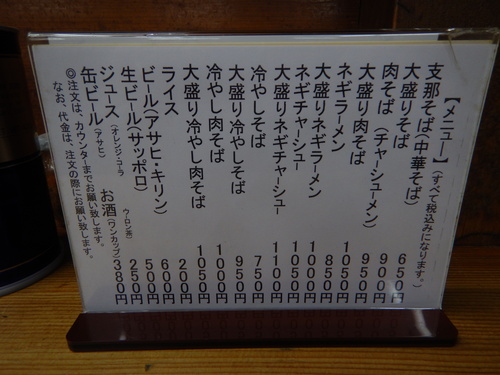 【メニュー】(すべて税込みになります。)
支那そば(中華そば) 650円
大盛りそば 900円
肉そば (チャーシューメン) 950円
大盛り肉そば 1050円
ネギラーメン 850円
大盛りネギラーメン 1000円
ネギチャーシュー 1050円
大盛りネギチャーシュー 1100円
冷やしそば 750円
大盛り冷やしそば 950円
冷やし肉そば 1000円
大盛り冷やし肉そば 1050円
ライス 200円
ビール(アサヒ・キリン) 600円
生ビール(サッポロ) 500円
ジュース(オレンジ・コーラ ウーロン茶) 250円
缶ビール(アサヒ) お酒(ワンカップ) 380円
◎注文は、カウンターまでお願い致します。
なお、代金は、注文の際にお願い致します。